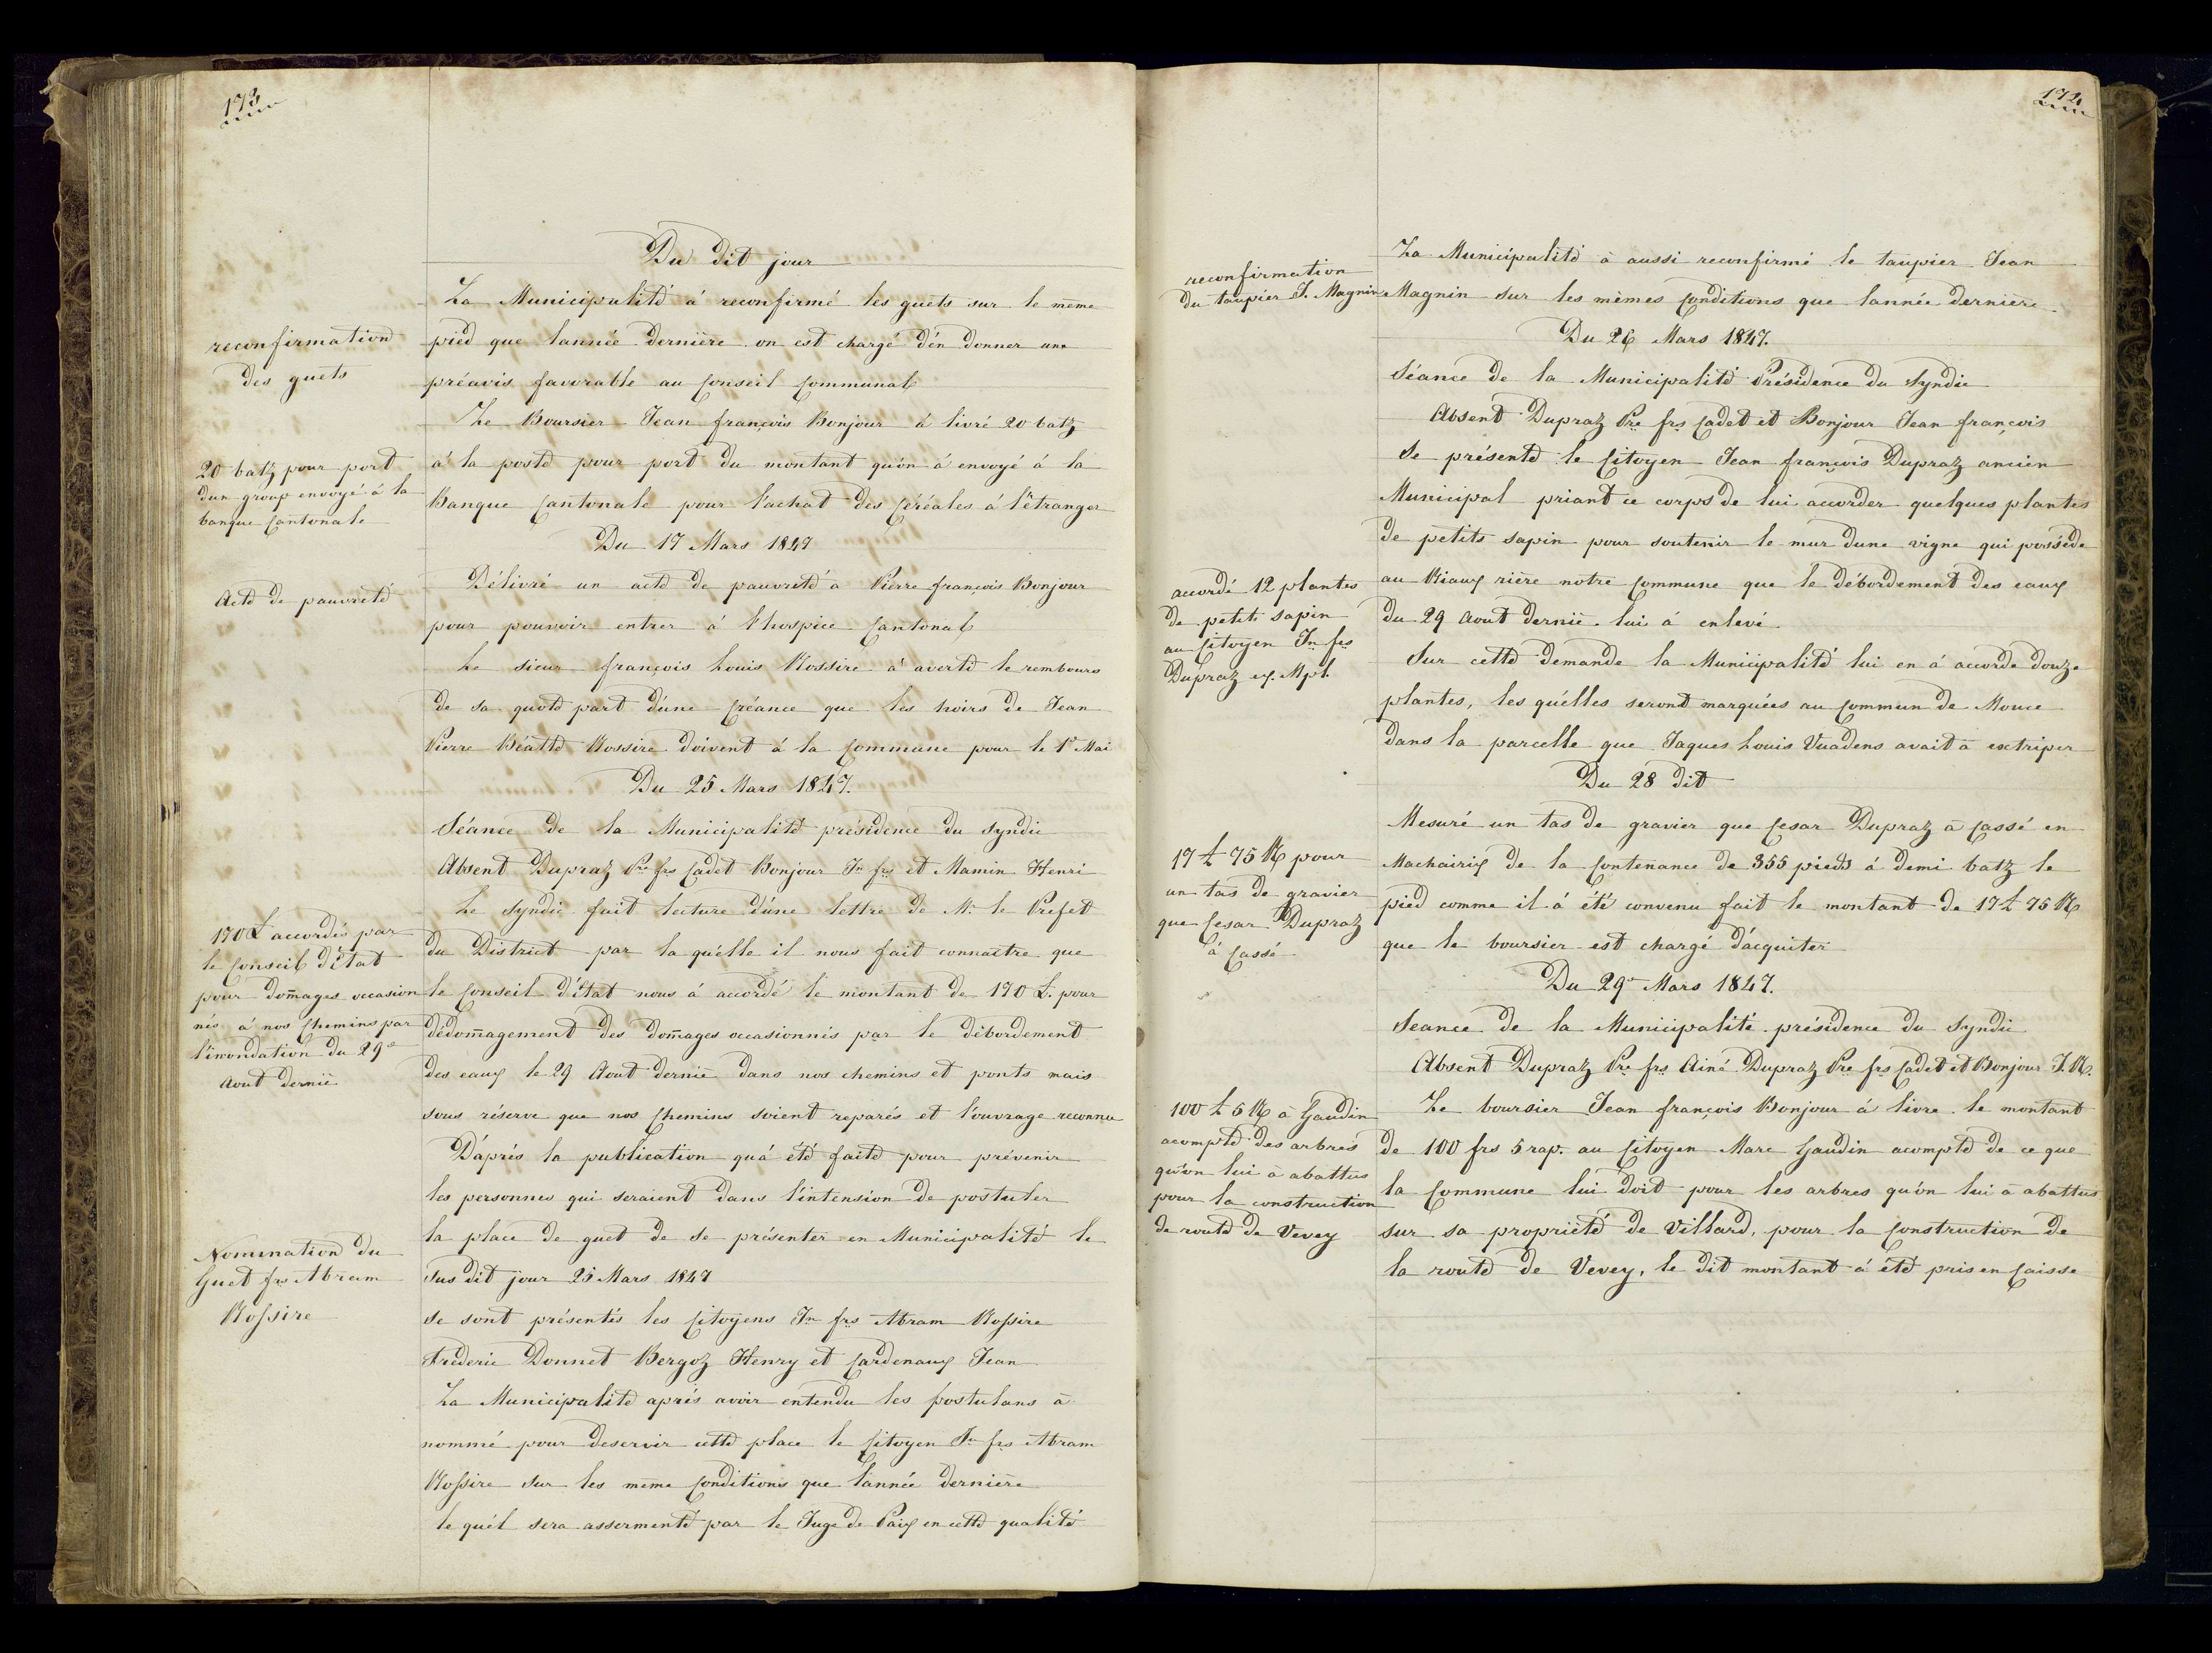 173
Du dit jour
reconfirmation
des guets
La Municipalité à reconfirmé les guets sur le même
pied que lannée dernière on est chargé d'én donner une
préavis favorable au Conseil Communal
20 batz pour port
dun group envoyé à la
banque Cantonale
Le Boursier Jean françois Bonjour à livré 20 batz
à la poste pour port du montant qu'on à envoyé à la
Banque Cantonale pour l'achat des Céréales à l'étranger
Du 17 Mars 1847
Acte de pauvreté
Délivré un acte de pauvreté à Pierre françois Bonjour
pour pouvoir entrer à l'hospice Cantonal
Le sieur françois Louis Rossire à averti le rembours
de sa quote part d'une Créance que les hoirs de Jean
Pierre Béatte Rossire doivent à la Commune pour le 1r Mai
Du 25 Mars 1847.
Séance de la Municipalité présidence du Syndic
Absent Dupraz Pre frs Cadet Bonjour Jn frs et Mamin Henri
170 L accordés par
le Conseil d'Etat
pour domages occasion
nés à nos Chemins par
l'inondation du 29e
Aout dernié
Le Syndic fait lecture d'une lettre de Mr. le Prefet
du District par la quélle il nous fait connaître que
le Conseil d'état nous à accordé le montant de 170 L. pour
dédomagement des domages occasionnés par le débordement
des eaux le 29 Aout dernié dans nos chemins et ponts mais
sous réserve que nos Chemins soient reparés et l'ouvrage reconnu
Nomination du
Guet frs Abram
Rossire
D'aprés la publication qu'à été faite pour prévenir
les personnes qui seraient dans l'intension de postuler
la place de guet de se présenter en Municipalité le
Sus dit jour 25 Mars 1847
se sont présentés les Citoyens Jn frs Abram Rossire
Fréderic Donnet Bergoz Henry et Cardenaux Jean
La Municipalité aprés avoir entendu les postulans à
nommé pour deservir cette place le Citoyen Jn frs Abram
Rossire sur les même Conditions que l'année dernière
le quél sera assermenté par le Juge de Paix en cette qualité
174
reconfirmation
du taupier J. Magnin
La Municipalité à aussi reconfirmé le taupier Jean
Magnin sur les mêmes Conditions que lannée dernière
Du 26 Mars 1847.
Séance de la Municipalité Présidence du Syndic
Absent Dupraz Pre frs Cadet et Bonjour Jean françois
accordé 12 plantes
de petits sapin
au Citoyen Jn frs
Dupraz ex. Mpl.
Se présenté le Citoyen Jean françois Dupraz ancien
Municipal priant ce corps de lui accorder quelques plantes
de petits sapin pour soutenir le mur dune vigne qui possède
au Riaux rière notre Commune que le débordement des eaux
du 29 Aout dernié. lui à enlevé
Sur cette demande la Municipalité lui en à accorde douze
plantes, les quélles seront marquées au Commun de Mouce
dans la parcelle que Jaques Louis Vuadens avait à extriper
Du 28 dit
17 L 75 R pour
un tas de gravier
que Cesar Dupraz
à Cassé
Mesuré un tas de gravier que Cesar Dupraz à Cassé en
Machairix de la Contenance de 355 pieds à demi batz le
pied comme il à été convenu fait le montant de 17 L 75 R
que le boursier est chargé d'acquiter
Du 29e Mars 1847.
Seance de la Municipalité présidence du Syndic
Absent Dupraz Pre frs Ainé Dupraz Pre frs Cadet et Bonjour J. R.
100 L 5 R à Gaudin
acompte des arbres
qu'on lui à abattus
pour la construction
de route de Vevey
Le boursier Jean françois Bonjour à livre le montant
de 100 frs 5 rap. au Citoyen Marc Gaudin acompte de ce que
la Commune lui doit pour les arbres qu'on lui à abattus
sur sa proprieté de Villard, pour la Construction de
la route de Vevey, le dit montant à été pris en Caisse